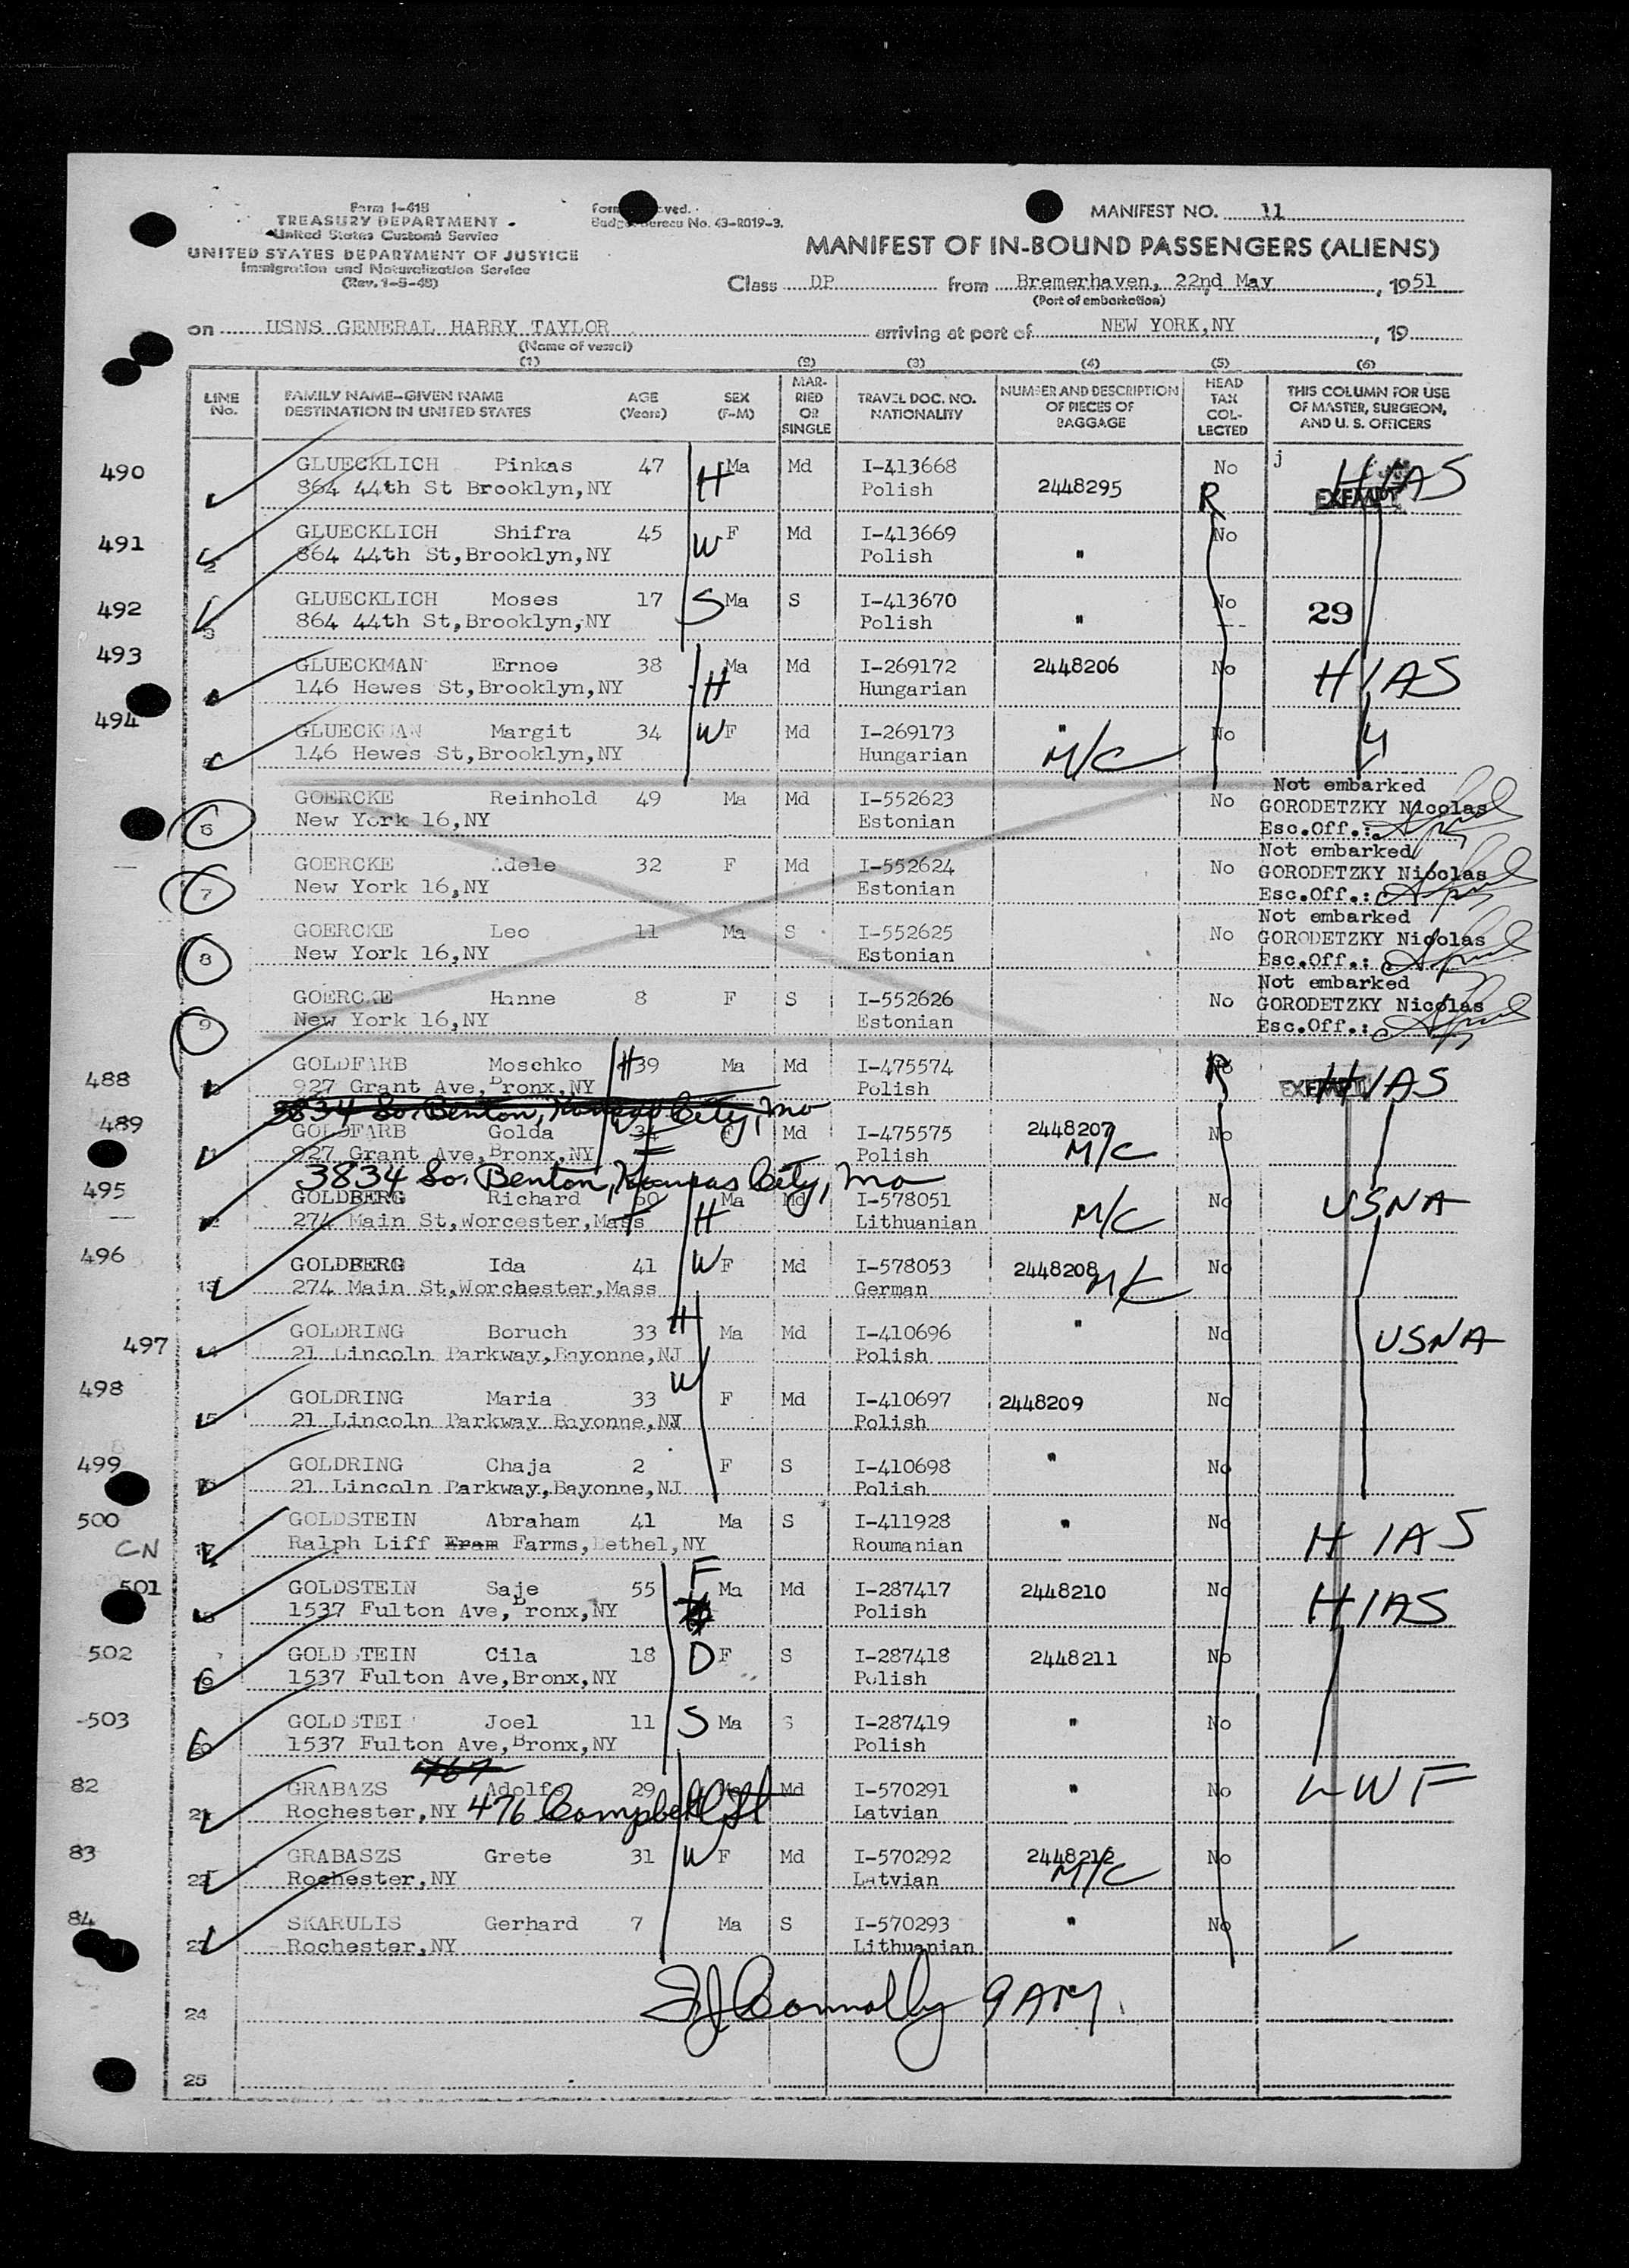 Form I-418
TREASURY DEPARTMENT
United States Customs Service
UNITED STATES DEPARTMENT OF JUSTICE
Immigration and Naturalization Service
(Rev. 1-5-48)
Budget Bureau No. 43-R019-3.
MANIFEST NO. 11
MANIFEST OF IN-BOUND PASSENGERS (ALIENS)
Class DP from Bremerhaven, 22nd May, 1951
(Port of embarkation)
on USNS GENERAL HARRY TAYLOR arriving at port of NEW YORK,NY, 19
(Name of vessel)
(1) (2) (3) (4) (5) (6)
LINE No. FAMILY NAME-GIVEN NAME DESTINATION IN UNITED STATES AGE (Years) SEX (F-M) MARRIED OR SINGLE TRAVEL DOC. NO. NATIONALITY NUMBER AND DESCRIPTION OF PIECES OF BAGGAGE HEAD TAX COLLECTED THIS COLUMN FOR USE OF MASTER, SURGEON, AND U. S. OFFICERS
490 GLUECKLICH Pinkas 47 H Ma Md I-413668 No j HIAS
864 44th St Brooklyn,NY Polish 2448295 R EXEMPT
491 GLUECKLICH Shifra 45 W F Md I-413669 No
2 864 44th St,Brooklyn,NY Polish "
492 GLUECKLICH Moses 17 S Ma S I-413670 No 29
3 864 44th St,Brooklyn,NY Polish "
493 GLUECKMAN Ernoe 38 H Ma Md I-269172 2448206 No HIAS
146 Hewes St,Brooklyn,NY Hungarian
494 GLUECKMAN Margit 34 W F Md I-269173 " No 4
146 Hewes St,Brooklyn,NY Hungarian M/C
GOERCKE Reinhold 49 Ma Md I-552623 No Not embarked
6 New York 16,NY Estonian GORODETZKY Nicolas
Esc.Off.:
GOERCKE Adele 32 F Md I-552624 No Not embarked
7 New York 16,NY Estonian GORODETZKY Nicolas
Esc.Off.:
GOERCKE Leo 11 Ma S I-552625 No Not embarked
8 New York 16,NY Estonian GORODETZKY Nicolas
Esc.Off.:
GOERCKE Hanne 8 F S I-552626 No Not embarked
9 New York 16,NY Estonian GORODETZKY Nicolas
Esc.Off.:
488 GOLDFARB Moschko H 39 Ma Md I-475574 No R EXEMPT HIAS
927 Grant Ave,Bronx,NY Polish
3834 So. Benton, Kansas City, Mo
489 GOLDFARB Golda 34 F Md I-475575 2448207 No
927 Grant Ave,Bronx,NY Polish M/C
3834 So. Benton, Kansas City, Mo
495 GOLDBERG Richard 60 H Ma Md I-578051 No USNA
274 Main St,Worcester,Mass Lithuanian M/C
496 GOLDBERG Ida 41 W F Md I-578053 2448208 No
13 274 Main St,Worchester,Mass German M/C
497 GOLDRING Boruch 33 H Ma Md I-410696 " No USNA
21 Lincoln Parkway,Bayonne,NJ Polish
498 GOLDRING Maria 33 W F Md I-410697 2448209 No
15 21 Lincoln Parkway Bayonne,NJ Polish
499 GOLDRING Chaja 2 F S I-410698 " No
21 Lincoln Parkway,Bayonne,NJ Polish
500 GOLDSTEIN Abraham 41 Ma S I-411928 " No HIAS
CN Ralph Liff Eram Farms,Bethel,NY Roumanian
501 GOLDSTEIN Saje 55 F Ma Md I-287417 2448210 No HIAS
1537 Fulton Ave,Bronx,NY Polish
502 GOLDSTEIN Cila 18 D F S I-287418 2448211 No
19 1537 Fulton Ave,Bronx,NY Polish
503 GOLDSTEI Joel 11 S Ma S I-287419 " No
20 1537 Fulton Ave,Bronx,NY Polish
767
82 GRABAZS Adolfs 29 H Md I-570291 " No LWF
21 Rochester,NY 476 Campbell St Latvian
83 GRABASZS Grete 31 W F Md I-570292 2448212 No
22 Rochester,NY Latvian M/C
84 SKARULIS Gerhard 7 Ma S I-570293 " No
23 Rochester,NY Lithuanian
Connolly 9AM
24
25